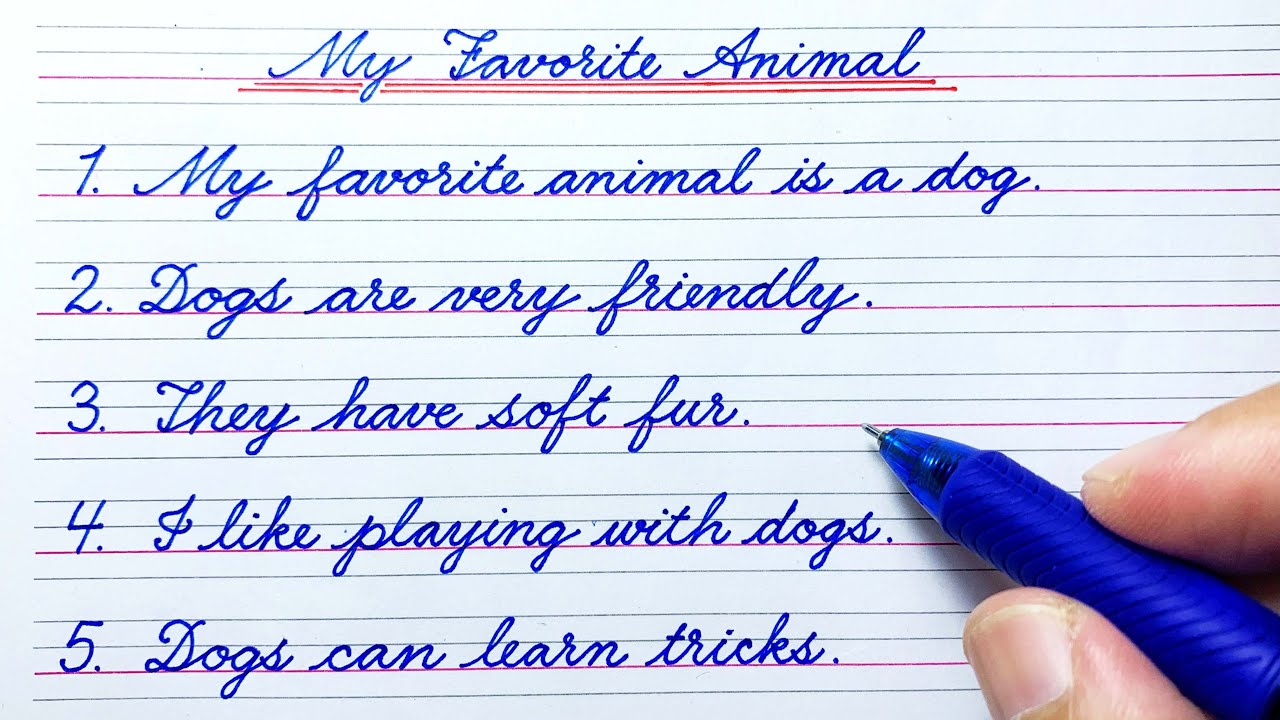 My Favorite Animal
1. My favorite animal is a dog.
2. Dogs are very friendly.
3. They have soft fur.
4. I like playing with dogs.
5. Dogs can learn tricks.